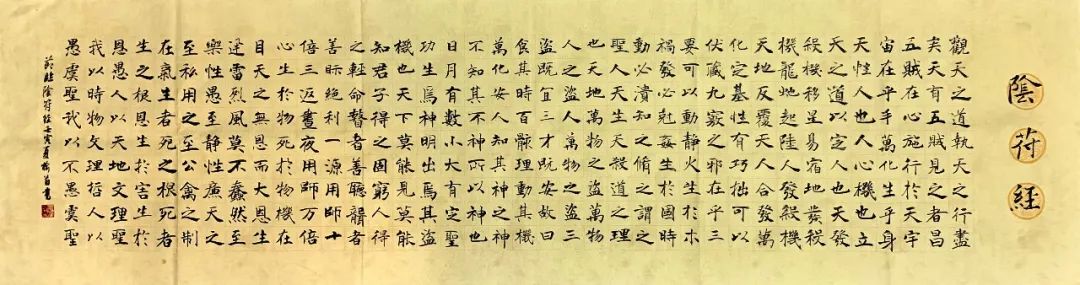 陰符經
觀天之道執天之行盡
矣天有五賊見之者昌
五賊在心施行於天宇
宙在乎手萬化生乎身
天性人也人心機也立
天之道以定人也天發
殺機移星易宿地發殺
機龍蛇起陸人發殺機
天地反覆天人合發萬
化定基性有巧拙可以
伏藏九竅之邪在乎三
要可以動靜火生於木
禍發必剋姦生於國時
動必潰知之脩之謂之
聖人天生天殺道之理
也天地萬物之盜萬物
人之盜人萬物之盜三
盜既宜三才既安故曰
食其時百骸理動其機
萬化安人知其神之神
不知其不神所以神也
日月有數小大有定聖
功生焉神明出焉其盜
機也天下莫能見莫能
知君子得之固窮人得
之輕命瞽者善聽聾者
善眎絕利一源用師十
倍三返晝夜用師万倍
心生於物死於物機在
目天之無恩而大恩生
迅雷烈風莫不蠢然至
樂性愚至靜性廉天之
至私用之至公禽之制
在氣生者死之根死者
生之根恩生於害生於
恩愚人以天地文理聖
我以時物文理哲人以
愚虞聖我以不愚虞聖
節臨陰符經壬寅夏書